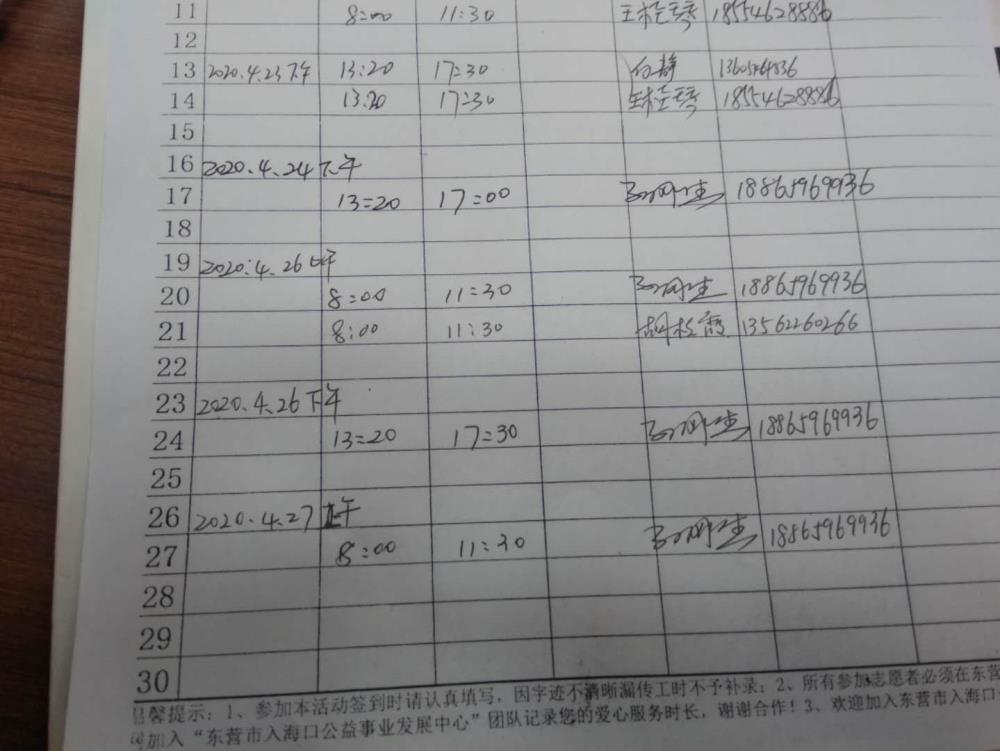 11 8:00 11:30 18554628886
12
13 2020.4.23下午 13:20 17:30 白静
14 13:20 17:30 18554628886
15
16 2020.4.24下午
17 13:20 17:00 18865969936
18
19 2020.4.26上午
20 8:00 11:30 18865969936
21 8:00 11:30 13562260266
22
23 2020.4.26下午
24 13:20 17:30 18865969936
25
26 2020.4.27上午
27 8:00 11:30 18865969936
28
29
30
温馨提示：1、参加本活动签到时请认真填写，因字迹不清晰漏传工时不予补录；2、所有参加志愿者必须在东营
加入“东营市入海口公益事业发展中心”团队记录您的爱心服务时长，谢谢合作！3、欢迎加入东营市入海口